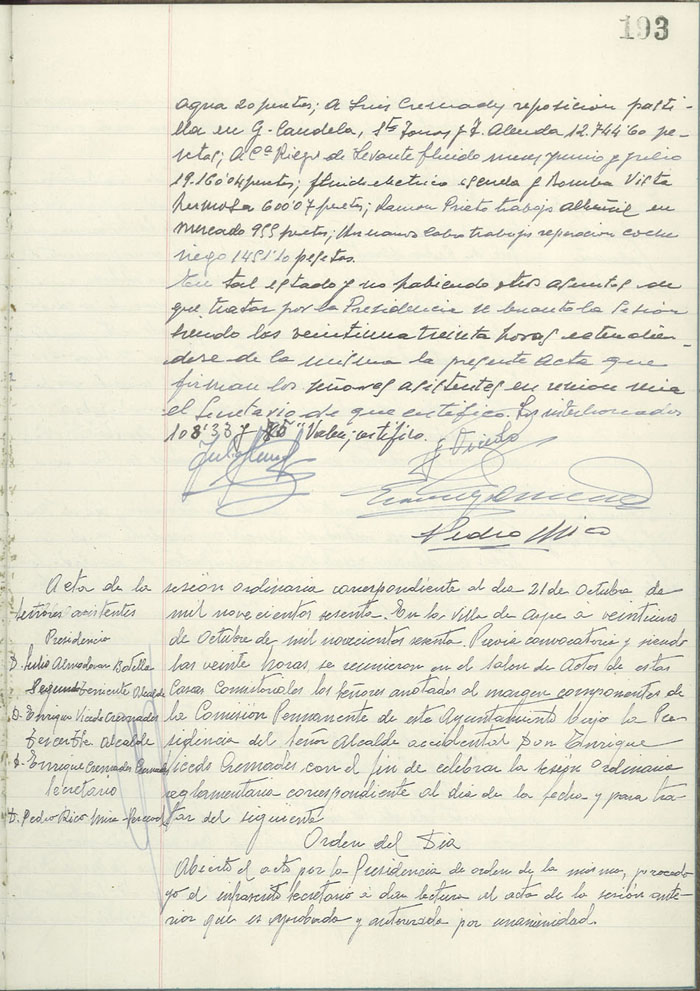 193
agua 20 pesetas; A Luis Cremades reposicion pasti-
lla en G. Candela, y F. Alenda 12.744'60 pe-
setas; A Cª Riegos de Levante fluido meses junio y julio
19.160'04 pesetas; fluido electrico escuela y Bomba Vista
hermosa 600'07 pesetas; Ramon Prieto trabajo albañil en
Mercado 955 pesetas; Hermanos trabajo reparacion coche
riego 1451'10 pesetas.
En tal estado y no habiendo otros asuntos de
que tratar por la Presidencia se levanto la Sesion
siendo las veintiuna treinta horas extendien-
dose de la misma la presente acta que
firman los señores asistentes en union mia
el Secretario de que certifico.
108'33 y Valen; certifico.
Pedro Rico
Acta de la sesion ordinaria correspondiente al dia 21 de Octubre de
mil novecientos sesenta. En la villa de Aspe a veintiuno
de Octubre de mil novecientos sesenta. Previa convocatoria y siendo
las veinte horas se reunieron en el salon de Actos de estas
Casas Consistoriales los señores anotados al margen componentes de
la Comision Permanente de este Ayuntamiento bajo la Pre-
sidencia del Señor Alcalde accidental Don Enrique
Vicedo Cremades con el fin de celebrar la sesión Ordinaria
reglamentaria correspondiente al dia de la fecha y para tra-
tar del siguiente
Señores asistentes
Presidencia
D. Julio Almodovar Botella
Segundo Teniente Alcalde
D. Enrique Vicedo Cremades
Tercer Tte Alcalde
D. Enrique Cremades
Secretario
D. Pedro Rico Mira
Orden del Dia
Abierto el acto por la Presidencia de orden de la misma, procedo
yo el infrascrito Secretario a dar lectura el acta de la sesión ante-
rior que es aprobada y autorizada por unanimidad.